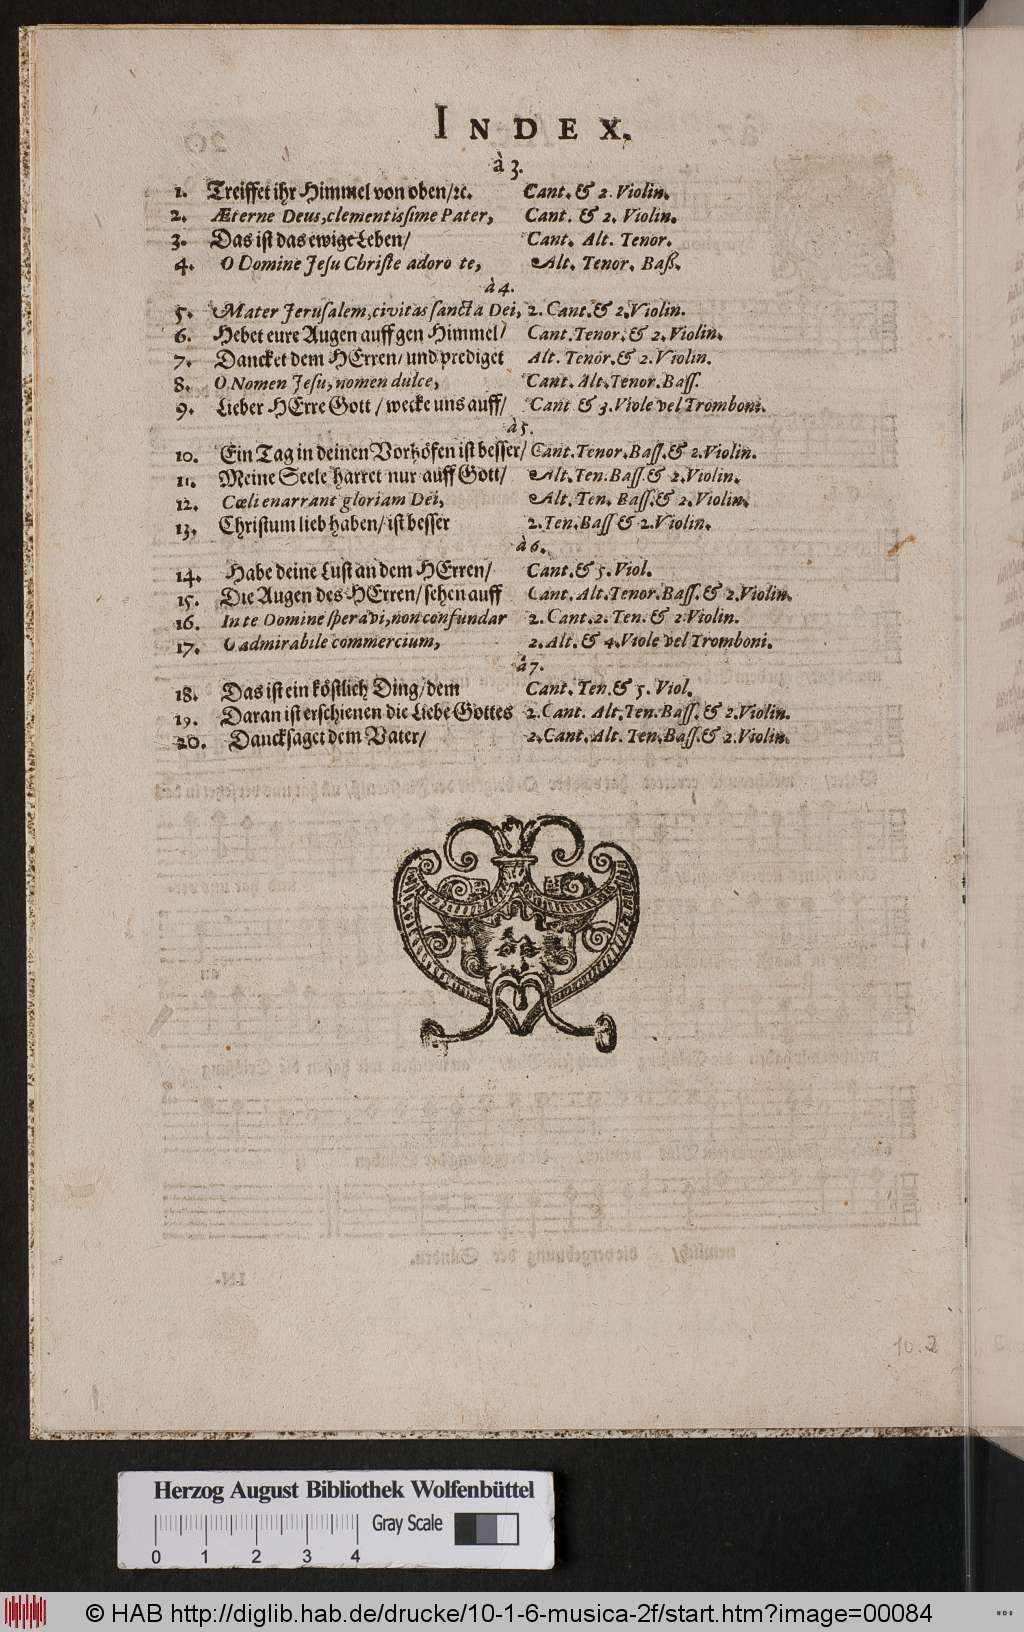 INDEX.
à 3.
1. Treiffet ihr Himmel von oben/ꝛc. Cant. & 2. Violin.
2. Æterne Deus, clementissime Pater, Cant. & 2. Violin.
3. Das ist das ewige Leben/ Cant. Alt. Tenor.
4. O Domine Jesu Christe adoro te, Alt. Tenor. Baß.
à 4.
5. Mater Jerusalem, civitas sancta Dei, 2. Cant. & 2. Violin.
6. Hebet eure Augen auff gen Himmel/ Cant. Tenor. & 2. Violin.
7. Dancket dem HErren/ und prediget Alt. Tenor. & 2. Violin.
8. O Nomen Jesu, nomen dulce, Cant. Alt. Tenor. Bass.
9. Lieber HErre Gott / wecke uns auff/ Cant & 3. Viole vel Tromboni.
à 5.
10. Ein Tag in deinen Vorhöfen ist besser/ Cant. Tenor. Bass. & 2. Violin.
11. Meine Seele harret nur auff Gott/ Alt. Ten. Bass. & 2. Violin.
12. Cœli enarrant gloriam Dei, Alt. Ten. Bass. & 2. Violin.
13. Christum lieb haben/ ist besser 2. Ten. Bass & 2. Violin.
à 6.
14. Habe deine Lust an dem HErren/ Cant. & 5. Viol.
15. Die Augen des HErren/ sehen auff Cant. Alt. Tenor. Bass. & 2. Violin.
16. In te Domine speravi, non confundar 2. Cant. 2. Ten. & 2 Violin.
17. O admirabile commercium, 2. Alt. & 4. Viole vel Tromboni.
à 7.
18. Das ist ein köstlich Ding/ dem Cant. Ten. & 5. Viol.
19. Daran ist erschienen die Liebe Gottes 2. Cant. Alt. Ten. Bass. & 2. Violin.
20. Dancksaget dem Vater/ 2. Cant. Alt. Ten. Bass. & 2. Violin.
10. 2
Herzog August Bibliothek Wolfenbüttel
Gray Scale
0 1 2 3 4
© HAB http://diglib.hab.de/drucke/10-1-6-musica-2f/start.htm?image=00084